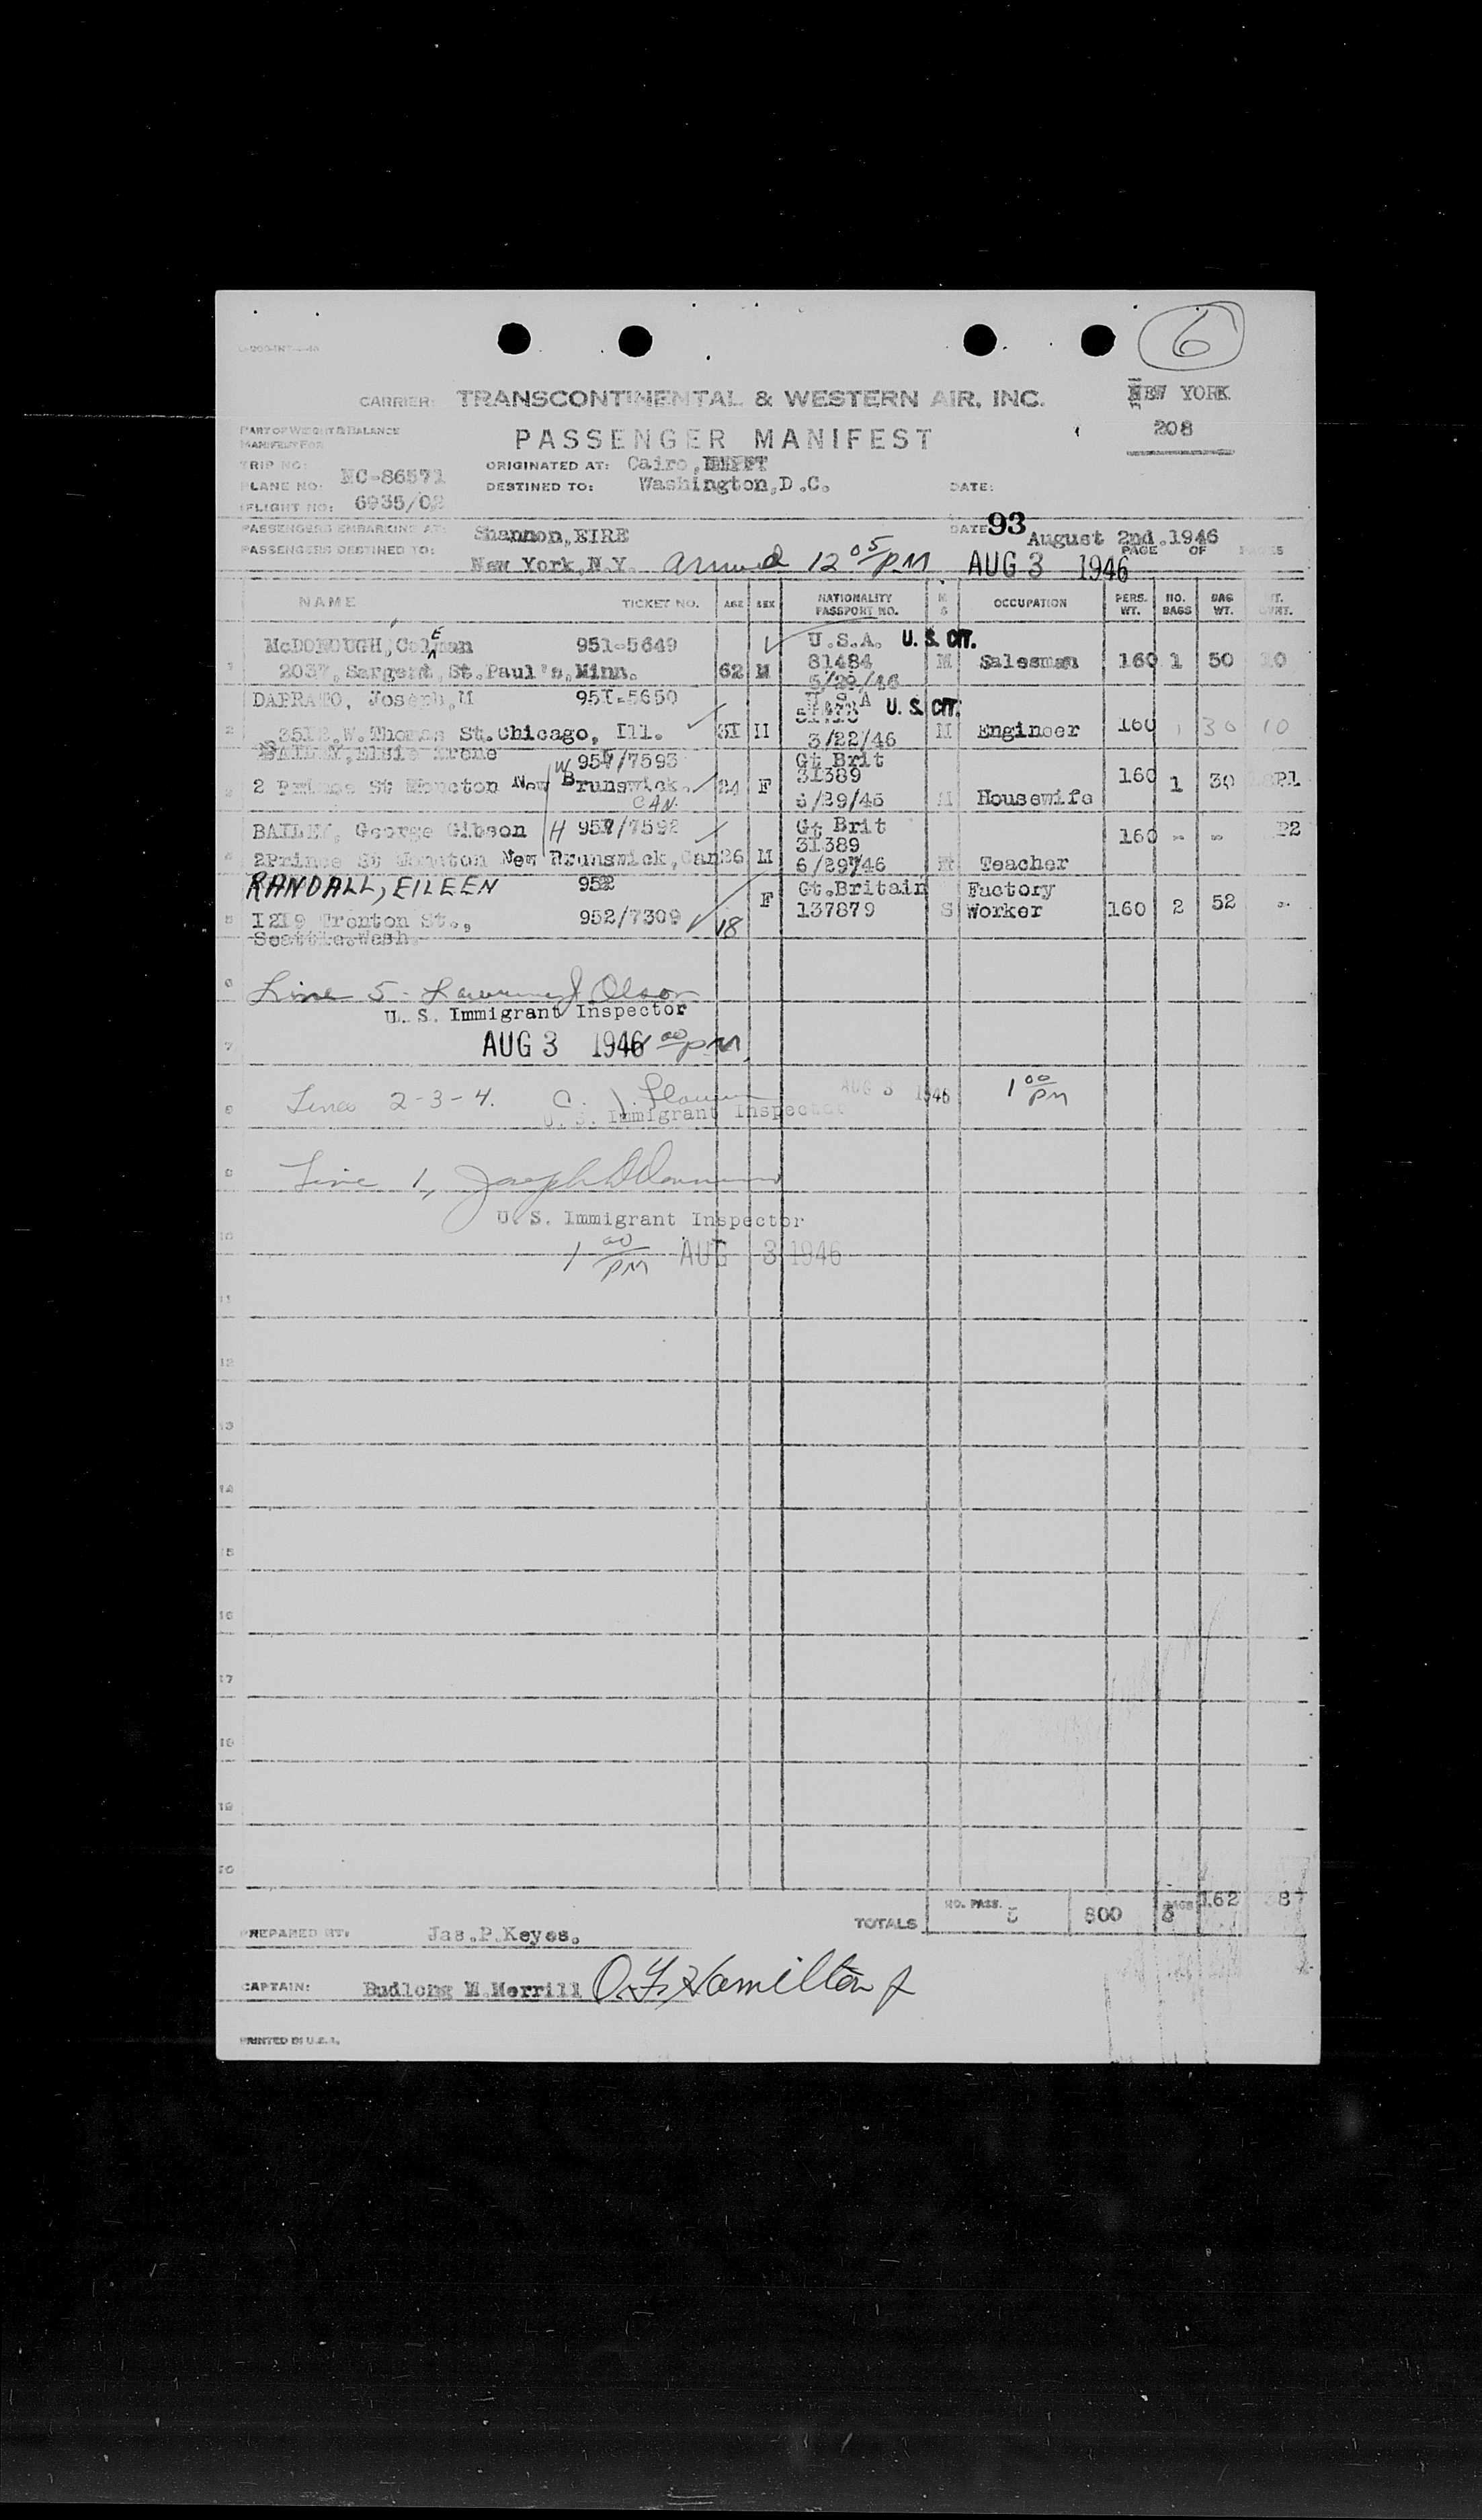 6
CARRIER: TRANSCONTINENTAL & WESTERN AIR, INC.
NEW YORK
208
PART OF WEIGHT & BALANCE
MANIFEST FOR
PASSENGER MANIFEST
TRIP NO:
PLANE NO: NC-86571
FLIGHT NO: 6935/02
ORIGINATED AT: Cairo,
DESTINED TO: Washington,D.C.
DATE:
PASSENGERS EMBARKING AT: Shannon,EIRE
DATE 93 August 2nd.1946
PASSENGERS DESTINED TO: New York,N.Y. arrived 12 05 PM AUG 3 1946
PAGE OF PAGES
NAME TICKET NO. AGE SEX NATIONALITY PASSPORT NO. M S OCCUPATION PERS. WT. NO. BAGS BAG WT.
McDONOUGH, Coleman 951-5649 U.S.A. U. S. CIT.
2037, Sargent, St.Paul's, Minn. 62 M 81484 M Salesman 160 1 50 10
5/29/46
DAPRATO, Joseph,M 951-5650 U.S.A U. S. CIT.
W.Thomas St.Chicago, Ill. 31 M 3/22/46 M Engineer 160 1 30 10
BAILEY, Elsie Irene W /7593 Gt Brit
31389
2 Prince St Moncton New Brunswick. CAN. 24 F 6/29/46 M Housewife 160 1 30 P1
BAILEY, George Gibson H /7592 Gt Brit 160 - - P2
31389
2Prince St Moncton New Brunswick,Can 26 M 6/29/46 M Teacher
RANDALL, EILEEN 952 Gt.Britain Factory
1219 Trenton St., 952/7309 18 F 137879 S Worker 160 2 52 -
Seattle.Wash.
Line 5 - Olson
U. S. Immigrant Inspector
AUG 3 1946 00 PM
Lines 2-3-4. C. J. AUG 3 1946 1 00 PM
U. S. Immigrant Inspector
Line 1, Joseph
U. S. Immigrant Inspector
1 00 PM AUG 3 1946
TOTALS NO. PASS. 5 800 5 162
PREPARED BY: Jas.P.Keyes.
CAPTAIN: Budlong M.Merrill O. F. Hamilton Jr
PRINTED IN U.S.A.